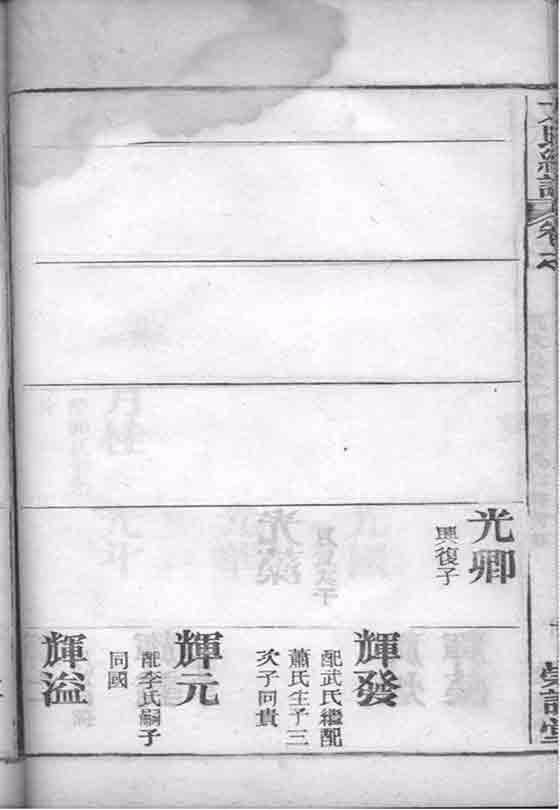 光卿
興復子
輝發
配武氏繼配
蕭氏生子三
次子同貴
輝元
配李氏嗣子
同國
輝溢